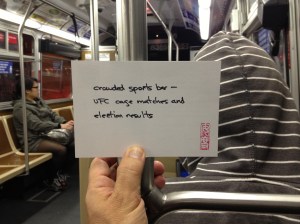 crowded sports bar —
UFC cage matches and
election results